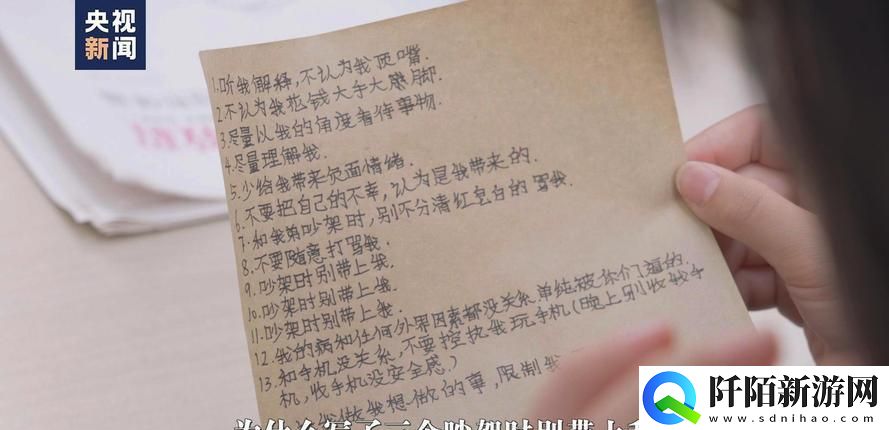 央视
新闻
1.听我解释,不认为我顶嘴.
2.不认为我花钱大手大脚.
3.尽量以我的角度看待事物.
4.尽量理解我.
5.少给我带来负面情绪.
6.不要把自己的不幸,认为是我带来的.
7.和我弟吵架时,别不分清红皂白的骂我.
8.不要随意打骂我.
9.吵架时别带上我.
10.吵架时别带上我.
11.吵架时别带上我.
12.我的病和任何外界因素都没关系,单纯被你们逼的.
13.和手机没关系,不要控执我玩手机(晚上别收我手
机,收手机没安全感.)
我做我想做的事,限制我
为什么写了三个吵架时别带上我
阡陌新游网
www.sdnihao.com